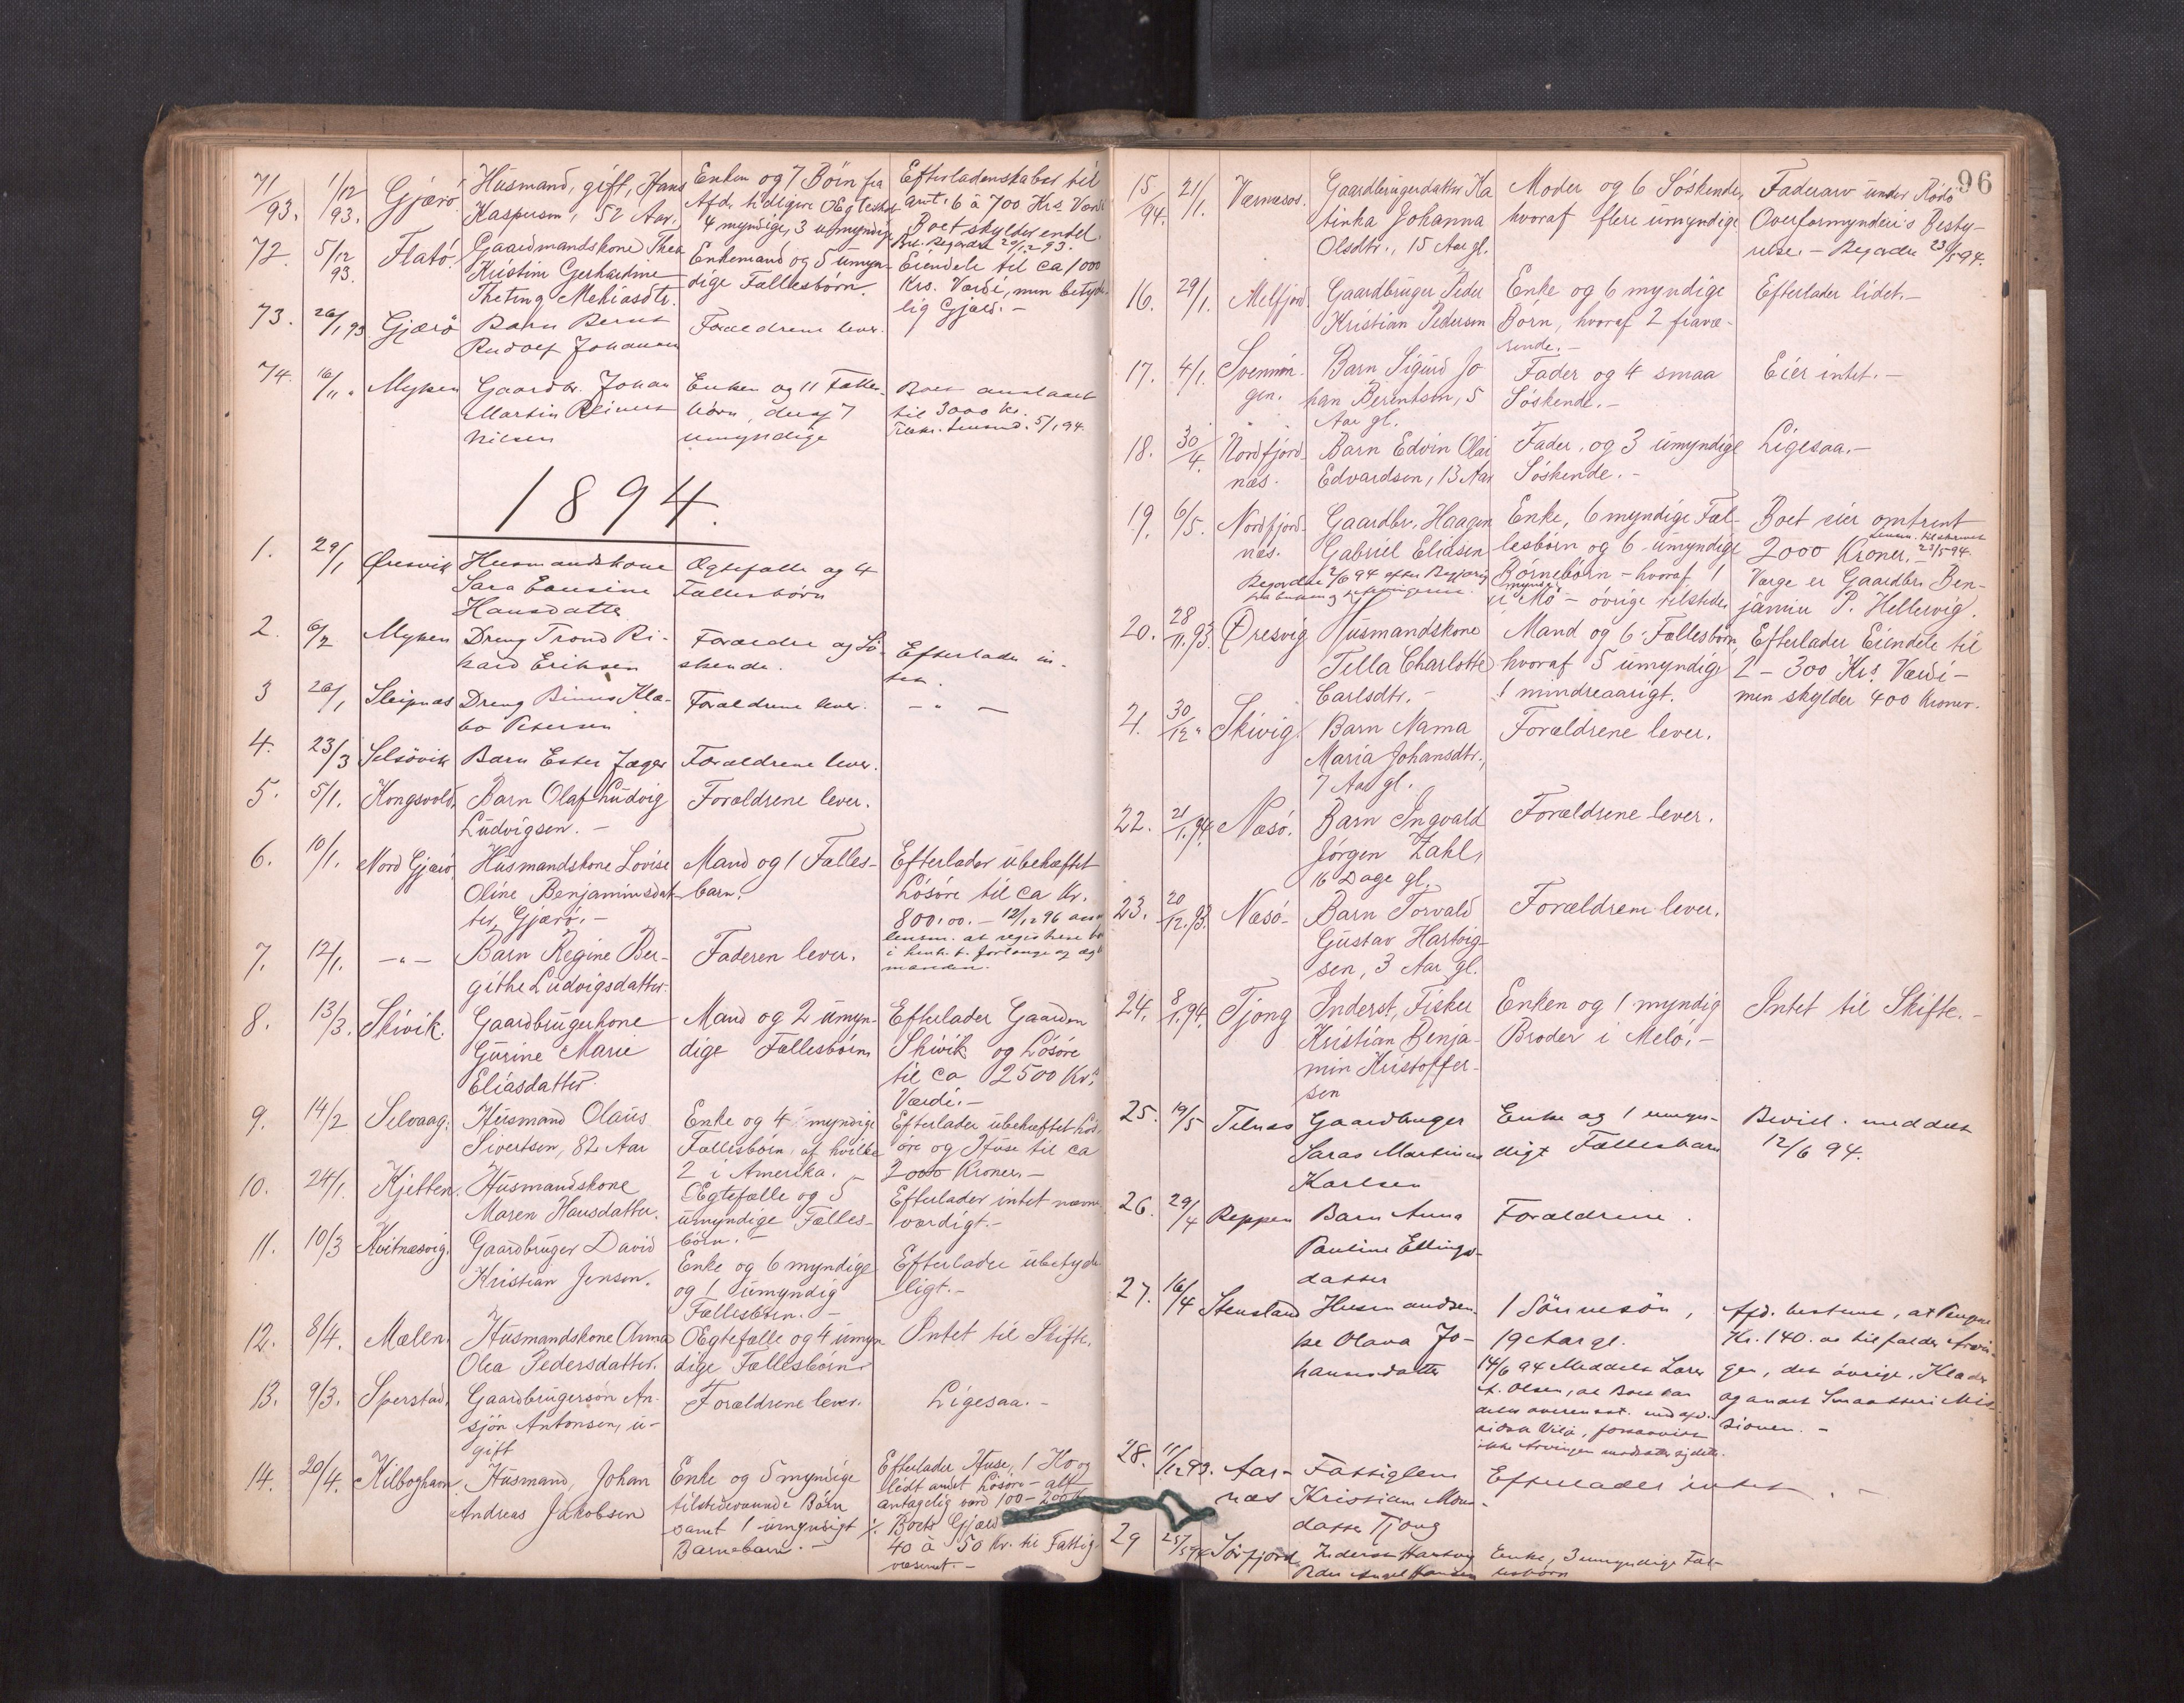 71/93. 1/12 93. Gjærø Husmand, gift, Hans Enken og 7 Börn fra Efterladenskaber til
Kaspersen, 52 Aar. Afdr. tidligere Ægteskab amt. 6 à 700 Krs. Værdi
4 myndige, 3 umyndig Boet skylder endel.
72. 5/12 93. Flatö. Gaardmandskone Thea Enkemand og 5 umyn- Eiendele til ca 1000
Kristine Gerhardine dige Fællesbörn. Krs. Værdi, men betyde-
Theting Mekiasdtr. lig Gjæld. -
73. 26/1 93 Gjærö Barn Bernt Forældrene lever.
Rudolf Johansen
74. 16/11 " Myken Gaardbr. Johan Enken og 11 Fælles- Boet anslaaet
Martin Reinert börn, deraf 7 til 3000 kr.
Nilsen umyndige 5/1 94.
1894.
1. 29/1 Øresvik Husmandskone Ægtefælle og 4
Sara Fællesbörn
Hansdatter
2. 6/2 Myken Dreng Trond Ri- Forældre og Sö- Efterlader in-
kard Eriksen skende. tet.
3 26/1 Sleipnæs Dreng Kla- Forældrene lever. - " -
bo Petersen
4. 23/3 Selsövik Barn Ester Jæger Forældrene lever.
5. 5/1. Kongsvold. Barn Olaf Ludvig Forældrene lever.
Ludvigsen. -
6. 10/1. Nord Gjærö, Husmandskone Lovise Mand og 1 Fælles- Efterlader ubehæftet
Oline Benjaminsdat- barn. Lösöre til ca Kr.
ter, Gjærö. - 800.00. - 12/12 96
7. 12/1. -"- Barn Regine Ber- Faderen lever.
githe Ludvigsdatter.
8. 13/3. Skivik. Gaardbrugerkone Mand og 2 umyn- Efterlader Gaarden
Gurine Marie dige Fællesbörn Skivik og Lösöre
Eliasdatter. til ca 2500 Krs.
Værdi. -
9. 14/2 Selvaag. Husmand Olaus Enke og 4 myndige Efterlader ubehæftet Lös-
Sivertsen, 82 Aar Fællesbörn, af hvilke öre og Huse til ca
2 i Amerika. 2000 Kroner. -
10. 24/1. Kjetten. Husmandskone Ægtefælle og 5 Efterlader intet nævne-
Maren Hansdatter. umyndige Fælles- værdigt. -
börn. -
11. 10/3 Kvitnæsvig. Gaardbruger David Enke og 6 myndige Efterlader ubetyde
Kristian Jensen. og 1 umyndig ligt. -
Fællesbörn. -
12. 8/4. Mælen. Husmandskone Anna Ægtefælle og 4 umyn Intet til Skifte.
Olea Pedersdatter. dige Fællesbörn
13. 9/3. Sperstad. Gaardbrugersön An- Forældrene lever. Ligesaa. -
sjön Antonsen, u-
gift
14. 20/4. Kilboghavn. Husmand, Johan Enke og 5 myndige Efterlader Huse, 1 Ko og
Andreas Jakobsen tilstedeværende Börn lidt andet Lösöre - alt
samt 1 umyndigt antagelig værd 100 - 200 Kr
Barnebarn. - ./. Boets Gjæld
40 à 50 Kr. til Fattig-
væsenet. -
96
15/94. 21/1. Værnæsos. Gaardbrugerdatter Ka Moder og 6 Söskende, Faderarv under Rödö
tinka Johanna hvoraf flere umyndige Overformynderi's Besty-
Olsdtr., 15 Aar gl. relse. - 23/5 94.
16. 29/1. Melfjord Gaardbruger Peder Enke og 6 myndige Efterlader lidet. -
Kristian Pedersen Börn, hvoraf 2 fravæ-
rende. -
17. 4/1. Svennin- Barn Sigurd Jo Fader og 4 smaa Eier intet. -
gen. han Berentsen, 5 Söskende. -
Aar gl.
18. 30/4. Nordfjord- Barn Edvin Olai Fader, og 3 umyndige Ligesaa. -
næs. Edvardsen, 13 Aar Söskende. -
19. 6/5. Nordfjord- Gaardbr. Haagen Enke, 6 myndige Fæl- Boet eier omtrent
næs. Gabriel Eliasen lesbörn og 6 umyndige 2000 Kroner. - 23/5 94.
2/6 94 efter Begjæring Börnebörn - hvoraf 1 Værge er Gaardbr. Ben-
i Mo - övrige tilstede jamin P. Hellervig.
20. 28/11. 93. Öresvig Husmandskone Mand og 6 Fællesbörn, Efterlader Eiendele til
Tella Charlotte hvoraf 5 umyndige 2 - 300 Krs. Værdi -
Carlsdtr. - 1 mindreaarigt. men skylder 400 Kroner.
21. 30/12 " Skivig. Barn Nama Forældrene lever.
Maria Johansdtr.,
7 Aar gl.
22. 21/1. 94. Næsö. Barn Ingvald Forældrene lever.
Jörgen Zahl,
16 Dage gl.
23. 20/12. 93. Næsö- Barn Torvald Forældrene lever.
Gustav Hartvig-
sen, 3 Aar gl.
24. 8/1. 94. Tjong Inderst, Fisker Enken og 1 myndig Intet til Skifte. -
Kristian Benja- Broder i Melö. -
min Kristoffer-
sen
25. 19/5 Telnes Gaardbruger Enke og 1 umyn- Bevill. meddelt
Saras Martinius digt Fællesbarn 12/6 94.
Karlsen
26. 29/4 Reppen Barn Anna Forældrene.
Pauline Ellings-
datter
27. 16/4 Stensland Husmandsen- 1 Sönnesön, Afd. bestemt, at Penge
ke Olava Jo- 19 Aar gl. Kr. 140.00 tilfalder Arvin-
hannesdatter 14/6 94 Meddelt Lars gen, det övrige, Klæder
Olsen, at Boet kan og andet Smaatteri Mis-
deles overensst. med afd. sionen. -
sidste Vilje, forsaavidt
ikke Arvingen modsætter sig dette.
28. 11/12 93. Aar- Fattiglem Efterlader intet. -
næs Kristiane Mons-
datter Tjong
29 25/5 94 Sörfjord Inderst Hartvig Enke, 3 umyndige Fæl-
Peder Hansen lesbörn